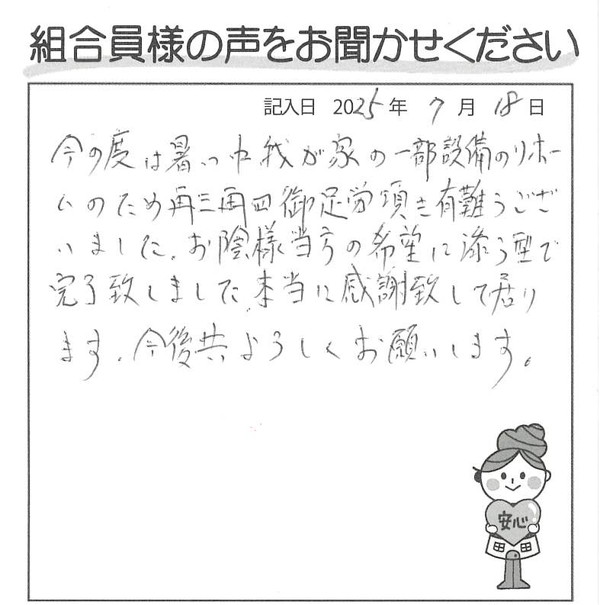 組合員様の声をお聞かせください
記入日 2025年 7月 18日
今の度は暑い中我が家の一部設備のリホー
ムのため再三再四御足労頂き有難うござ
いました。お陰様当方の希望に添う型で
完了致しました。本当に感謝致して居り
ます。今後共よろしくお願いします。
安心